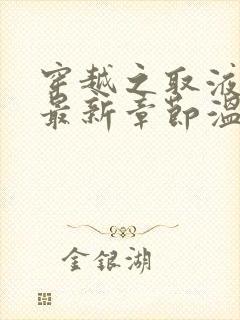 穿越之取液
最新章节温
金银湖